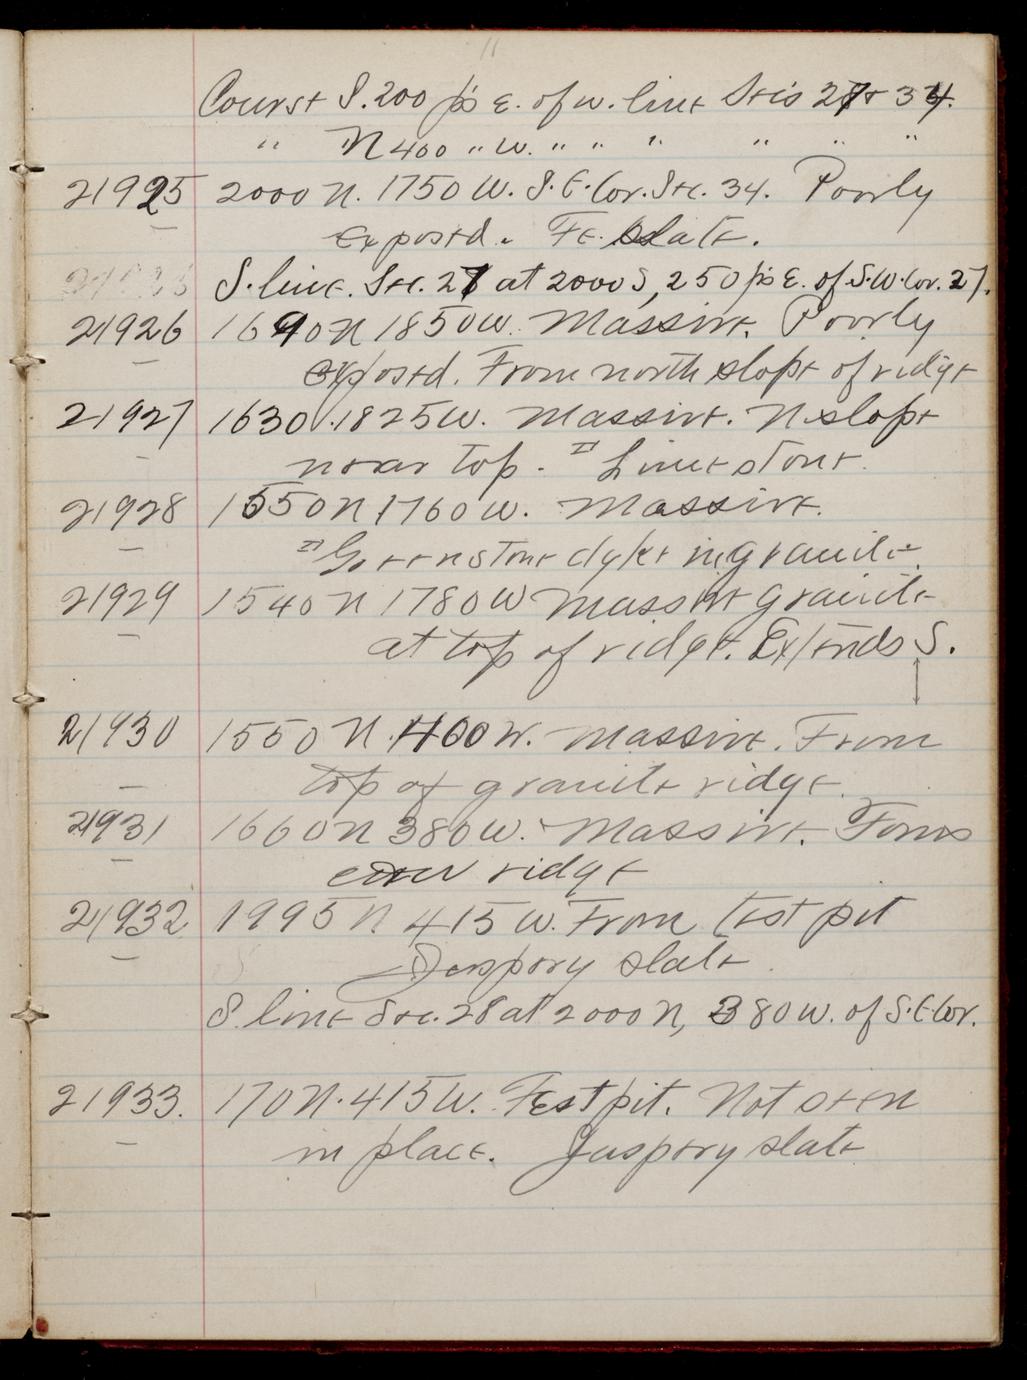 11
Course S. 200 ps E. of w. line Secs 27 & 34.
" N 400 " W. " " " " " "
21925 2000 N. 1750 W. S.E. Cor. Sec. 34. Poorly
exposed. Fe. Slate.
S. line. Sec. 27 at 2000 S, 250 ps E. of S.W. Cor. 27.
21926 1690 N 1850 W. Massive. Poorly
exposed. From north slope of ridge
21927 1630 . 1825 W. Massive. N. slope
near top. Limestone.
21928 1550 N 1760 W. Massive.
Greenstone dyke in granite.
21929 1540 N 1780 W Massive granite
at top of ridge. Extends S.
21930 1550 N. 400 W. Massive. From
top of granite ridge.
21931 1660 N 380 W. Massive. Forms
ridge
21932 1995 N 415 W. From test pit
Jaspery slate.
S. line Sec. 28 at 2000 N, 380 W. of S.E. Cor.
21933. 170 N. 415 W. Test pit. Not seen
in place. Jaspery slate